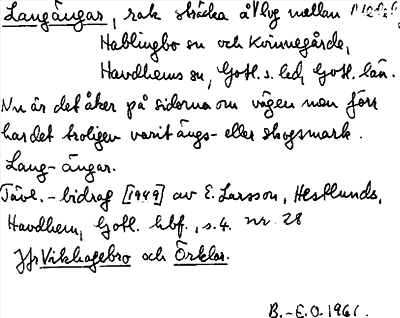 Langängar, rak sträcka å lvg mellan
Hablingbo sn och Kvinnegårde,
Havdhems sn, Gotl. s. hd, Gotl. län.
Nu är det åker på sidorna om vägen men förr
har det troligen varit ängs- eller skogsmark.
Lang- ängar.
Tävl. - bidrag [1949] av E. Larsson, Hestlunds,
Havdhem, Gotl. hbf., s. 4. nr. 28
Jfr Vikhagebro och Örklar.
B.-E.O. 1961.